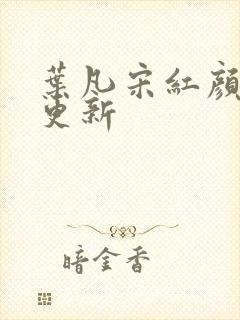 葉凡宋紅顏
更新
暗金香